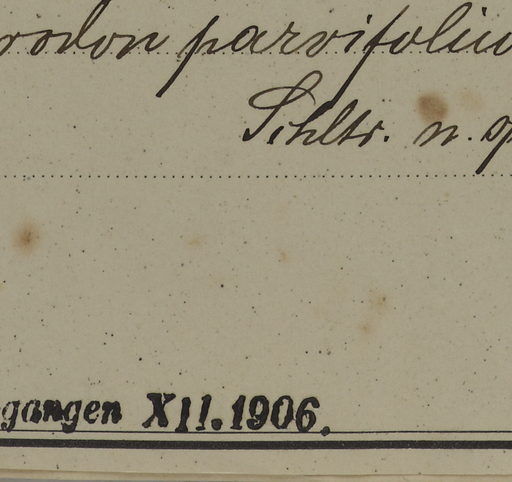 rodon parvifoliu
Schltr. n. sp
gangen XII. 1906.